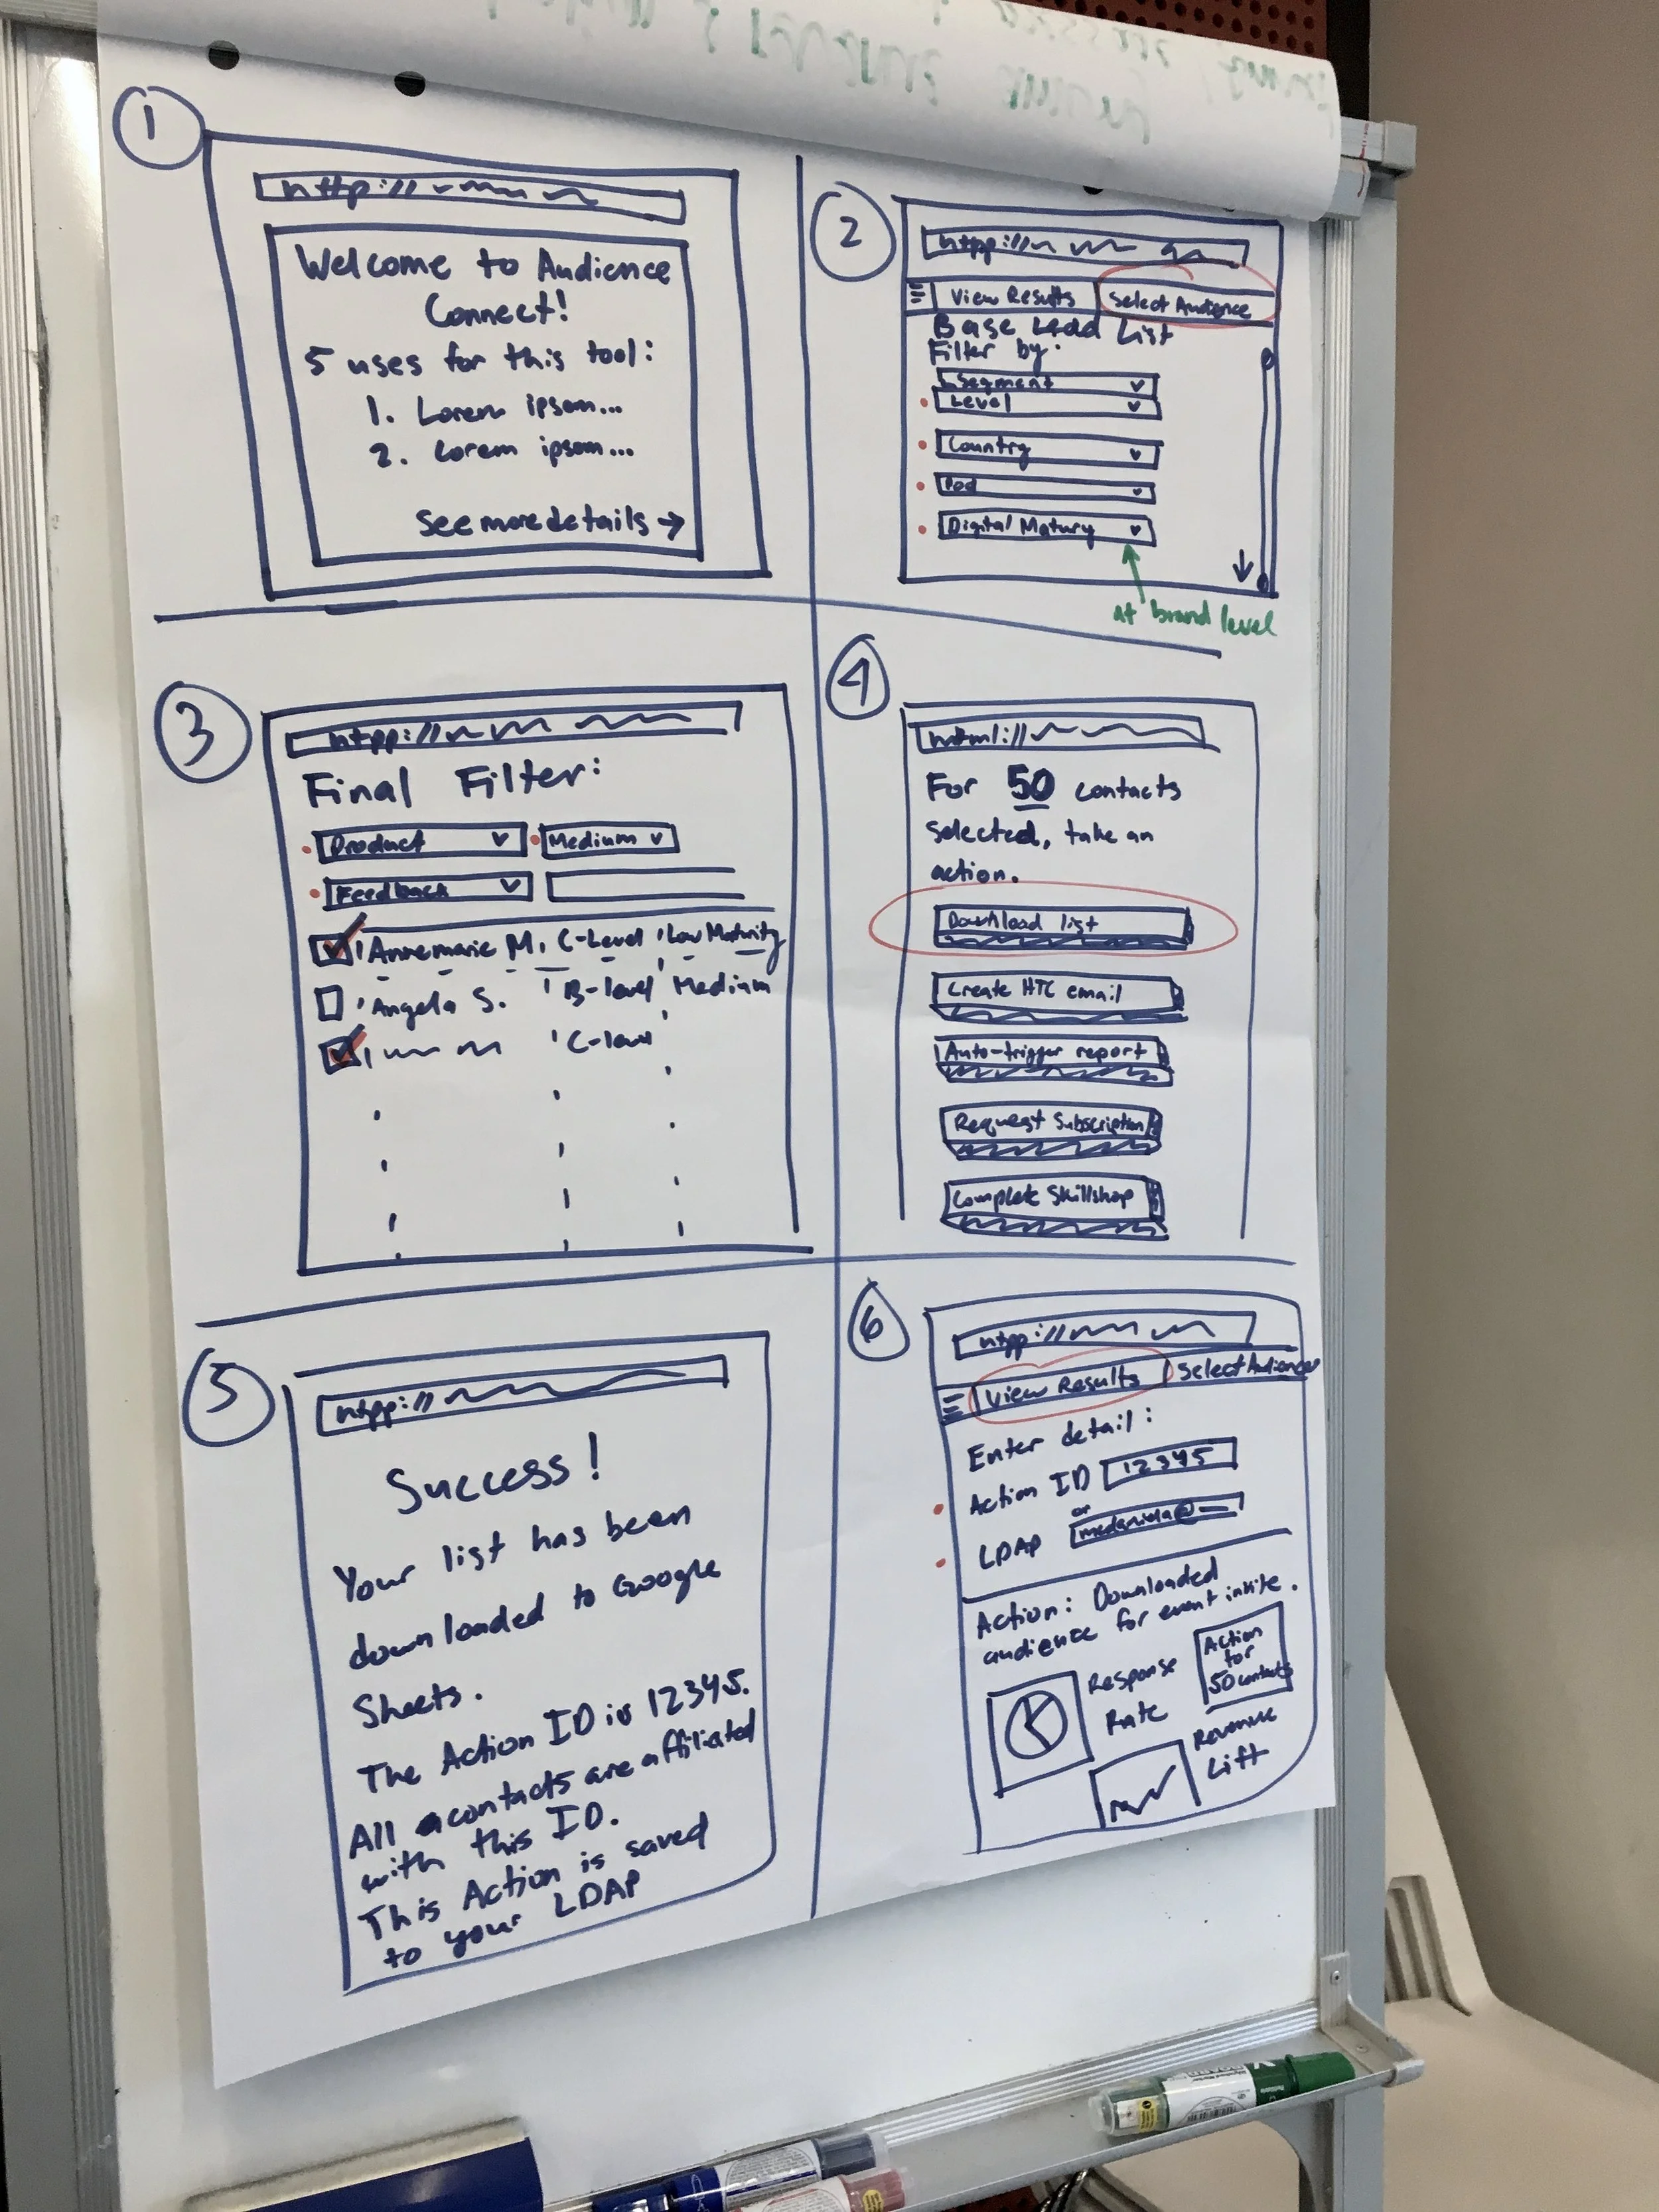 1
http://
Welcome to Audience
Connect!
5 uses for this tool:
1. Lorem ipsom...
2. Lorem ipsom...
See more details →
2
htpp://
View Results
Select Audience
Base Lead List
Filter by:
Segment
Level
Country
Pod
Digital Matury
at brand level
3
htpp://
Final Filter:
Product
Medium
Feedback
Annemarie M. C-Level Low Maturity
Angela S. B-level Medium
C-level
4
html://
For 50 contacts
selected, take an
action.
Download list
Create HTC email
Auto-trigger report
Request Subscription
Complete Skillshop
5
htpp://
Success!
Your list has been
downloaded to Google
Sheets.
The Action ID is 12345.
All contacts are affiliated
with this ID.
This Action is saved
to your LDAP
6
htpp://
View Results
Select Audience
Enter detail:
Action ID 12345
or
LDAP
Action: Downloaded
audience for event invite.
Response
Rate
Action
for
50 contacts
Revenue
Lift